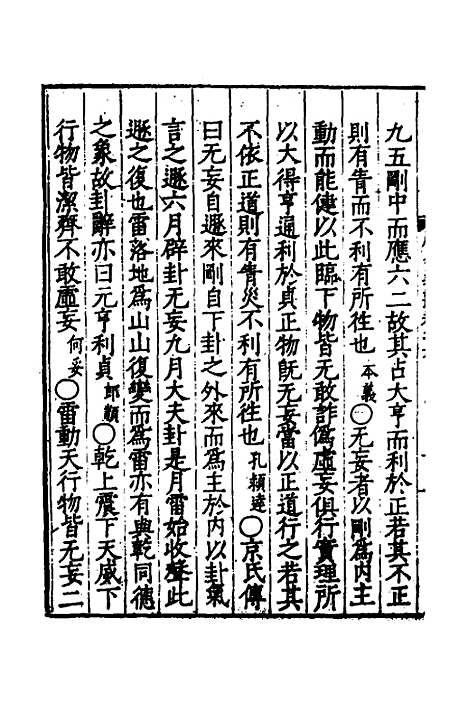 九五剛中而應六二故其占大亨而利於正若其不正
則有眚而不利有所往也本義○无妄者以剛爲内主
動而能健以此臨下物皆无敢詐僞虛妄俱行實理所
以大得亨通利於貞正物旣无妄當以正道行之若其
不依正道則有眚災不利有所往也孔穎達○京氏傳
曰无妄自遯來剛自下卦之外來而爲主於内以卦氣
言之遯六月辟卦无妄九月大夫卦是月雷始收聲此
遯之復也雷落地爲山山復變而爲雷亦有與乾同德
之象故卦辭亦曰元亨利貞郎顗○乾上震下天威下
行物皆潔齊不敢虛妄何妥○雷動天行物皆无妄二